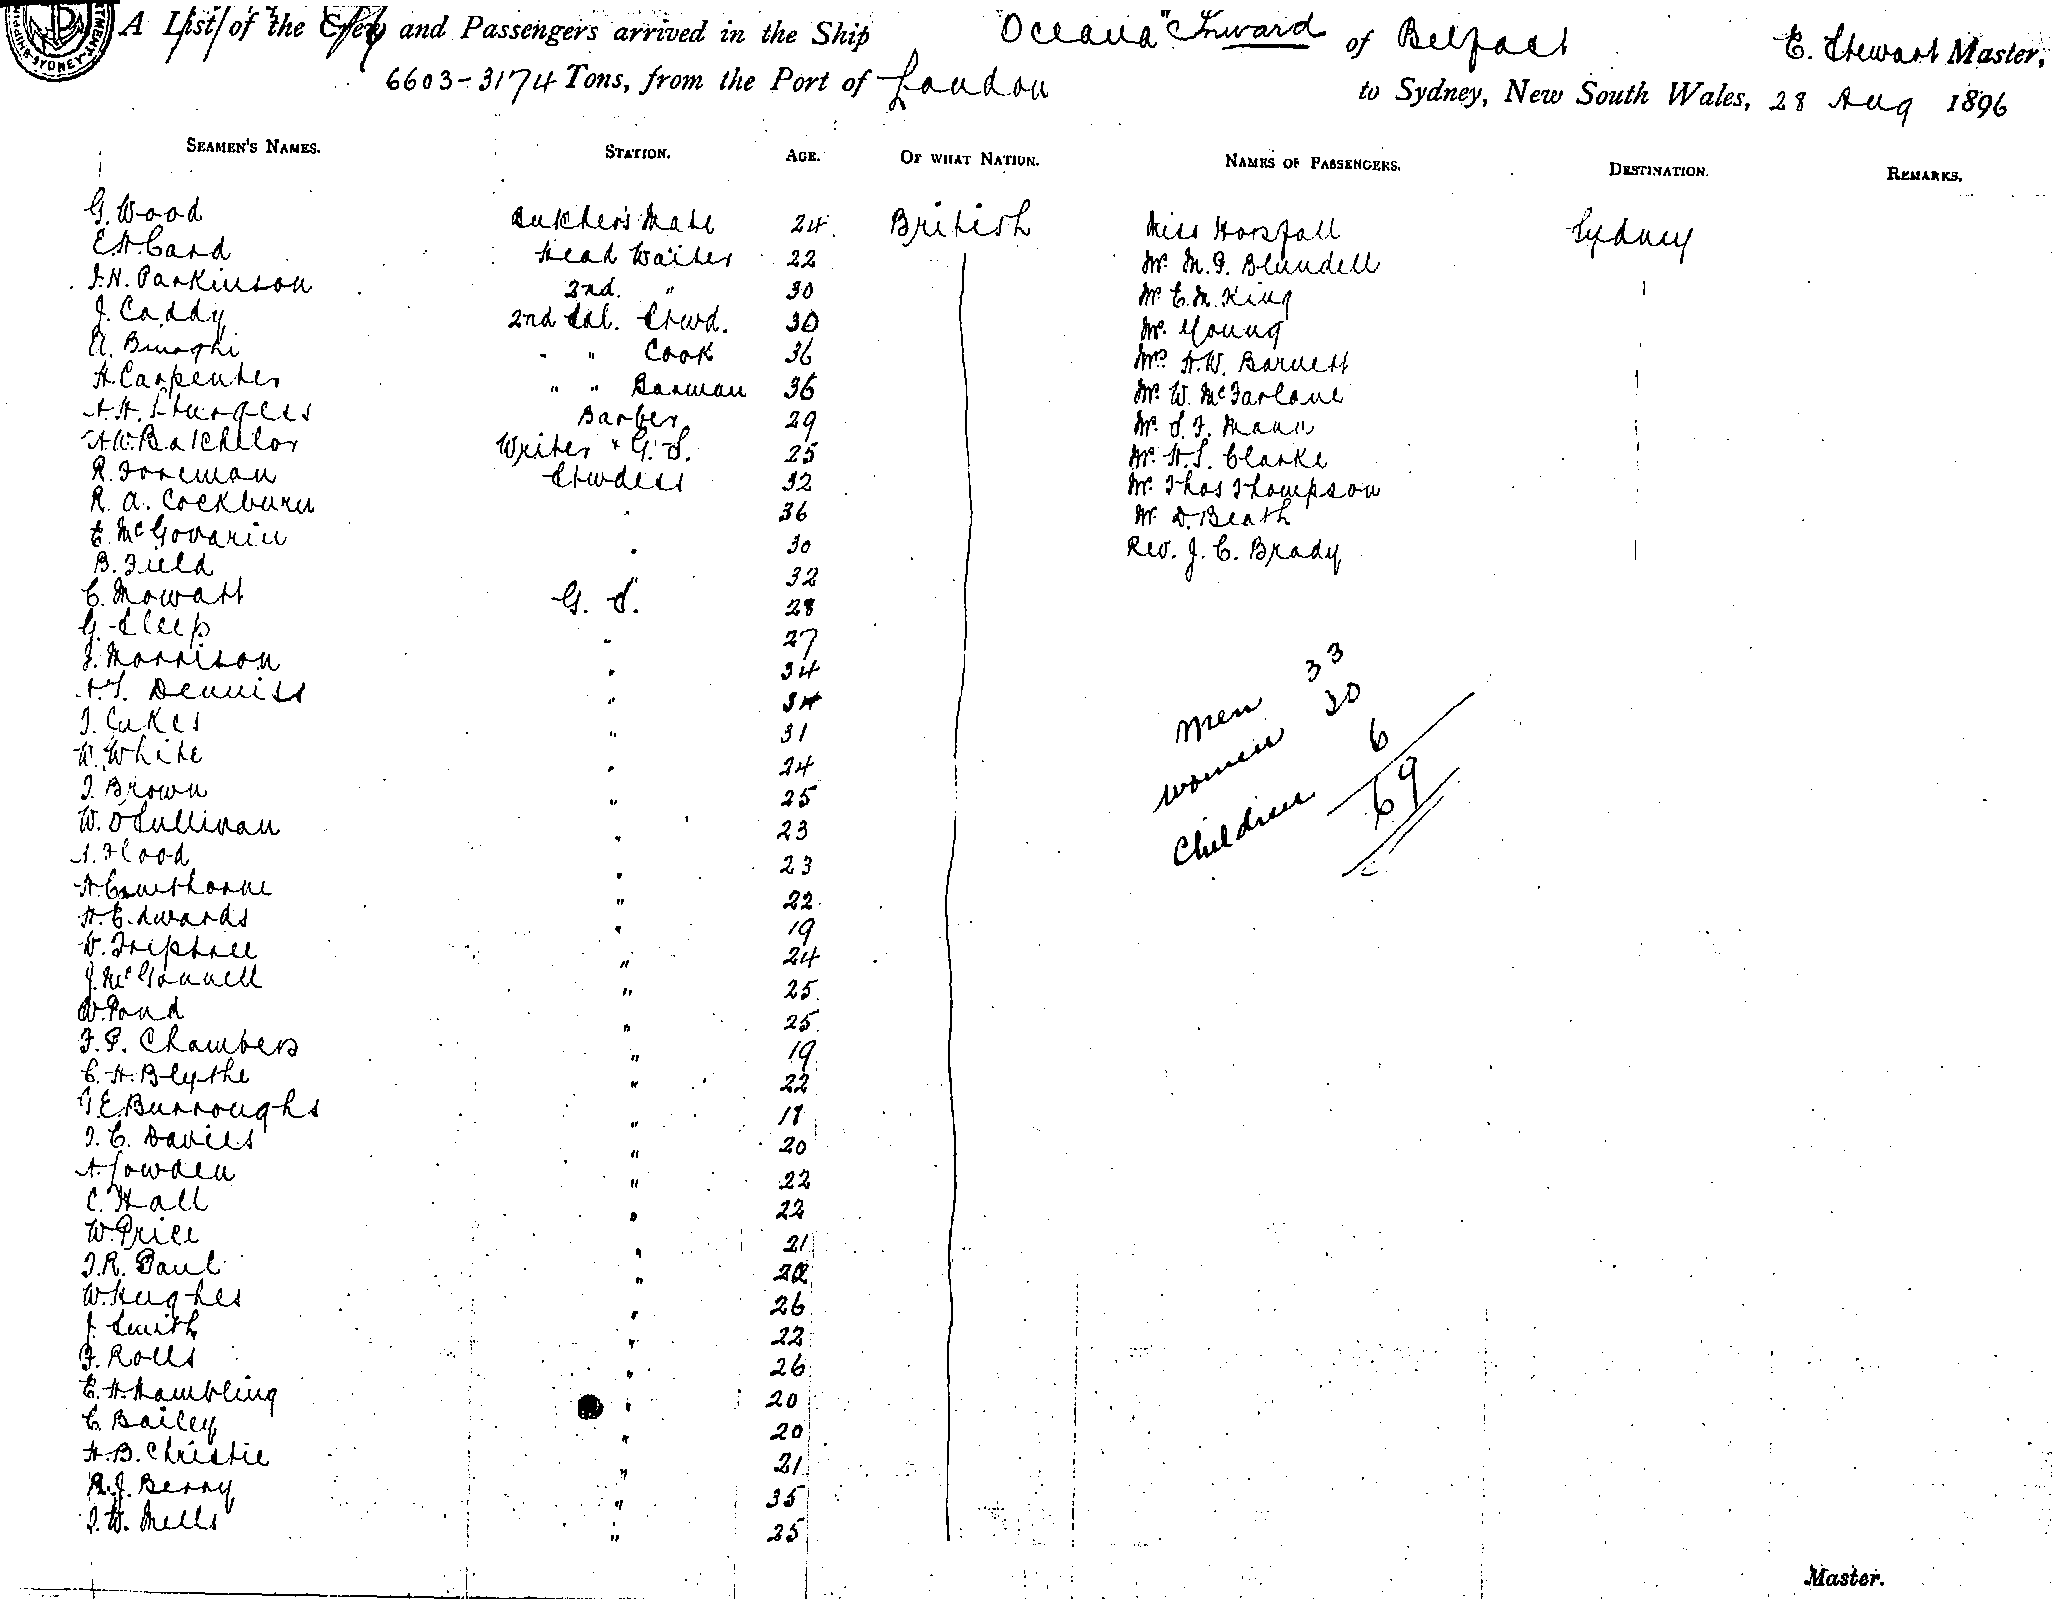 A List of the Crew and Passengers arrived in the Ship "Oceana" Inward of Belfast E. Stewart Master,
6603-3174 Tons, from the Port of London to Sydney, New South Wales, 28 Aug 1896
SEAMEN'S NAMES. STATION. AGE. OF WHAT NATION. NAMES OF PASSENGERS. DESTINATION. REMARKS.
G. Wood Butcher's Mate 24 British Miss Horsfall Sydney
E.H. Card Head Waiter 22 Mr. M. P. Blundell
J.H. Parkinson 2nd. " 30 Mr. E. M. King
J. Caddy 2nd Sal. Stwd. 30 Mr. Young
" " Cook 36 Mrs A.W. Barnett
H. Carpenter " " Barman 36 Mr. W. McFarlane
A.H. Sturgess Barber 29 Mr. S. F. Mann
A.W. Batchelor Writer & G. S. 25 Mr. H. S. Clarke
R. Foreman Stwdess 32 Mr. Thos Thompson
R. A. Cockburn " 36 Mr. D. Beath
E. McGovarin " 30 Rev. J. C. Brady
B. Field " 32
C. Mowatt G. S. 28
G. Sleep " 27
J. Morrison " 34
Denniss " 34
J. Cukes " 31
W. White " 24
J. Brown " 25
W. O'Sullivan " 23
Flood " 23
H. Cawthorne " 22
H. Edwards " 19
W. Triptree " 24
J. McGonnell " 25
W. Pond " 25
F. P. Chambers " 19
C. H. Blythe " 22
G E Burroughs " 18
J. C. Davies " 20
A. Sowden " 22
C. Hall " 22
W. Price " 21
J. R. Paul " 22
W. Hughes " 26
J. Smith " 22
F. Rolls " 26
E. H. Hambling " 20
C. Bailey " 20
H. B. Christie " 21
R. J. Berry " 35
J. W. Mells " 25
Men 33
Women 30
Children 6
69
Master.